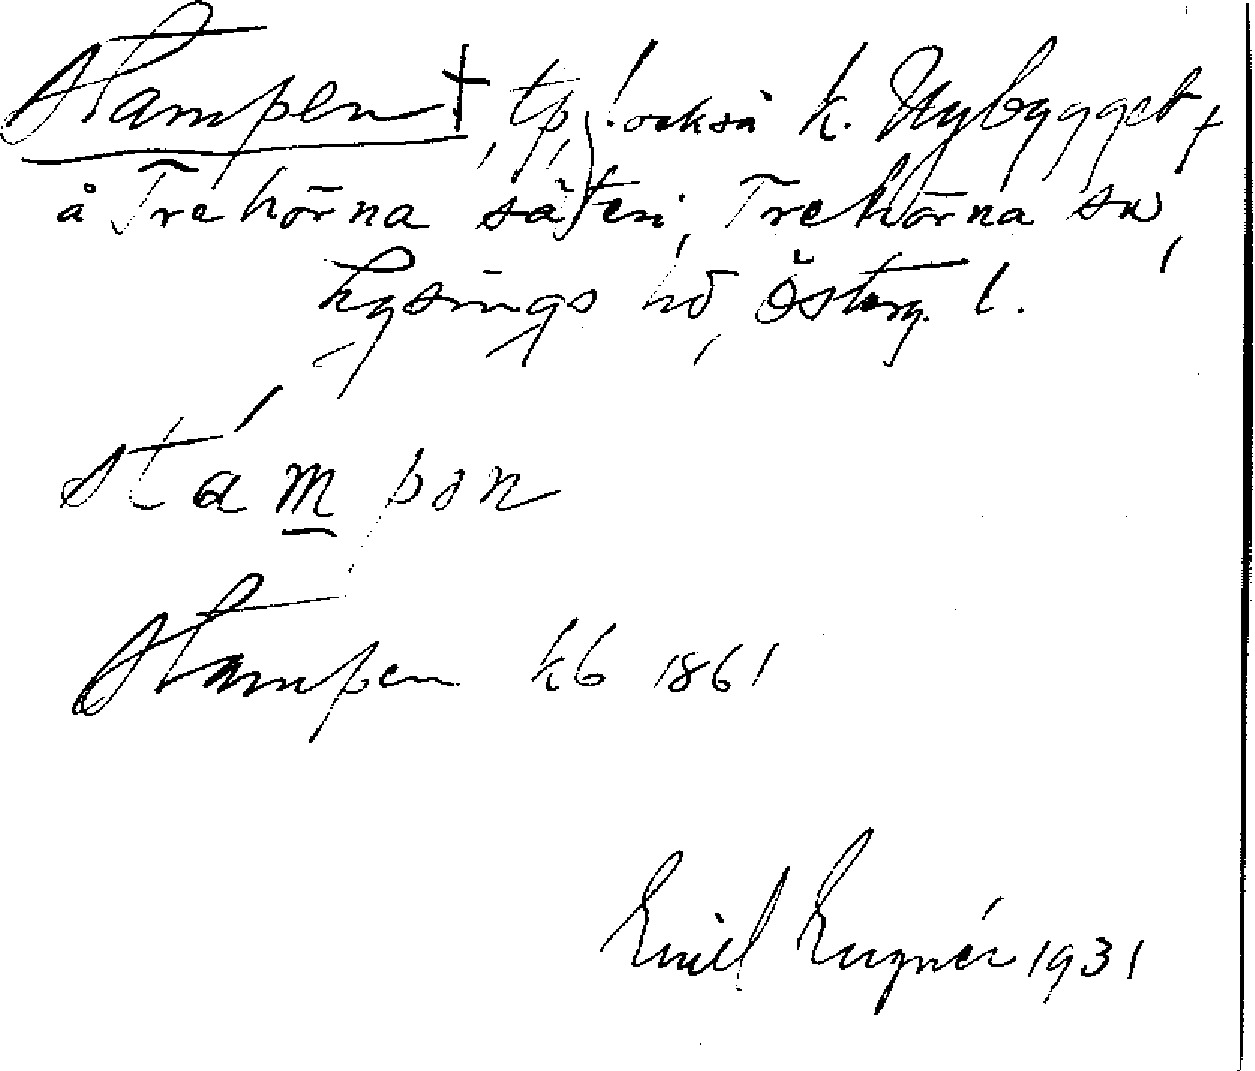 Stampen †, tp, också k. Nybygget,
å Trehörna säteri, Trehörna sn,
Ydrings hd, Österg. l.
stámpən
Stampen kb 1861
Emil 1931